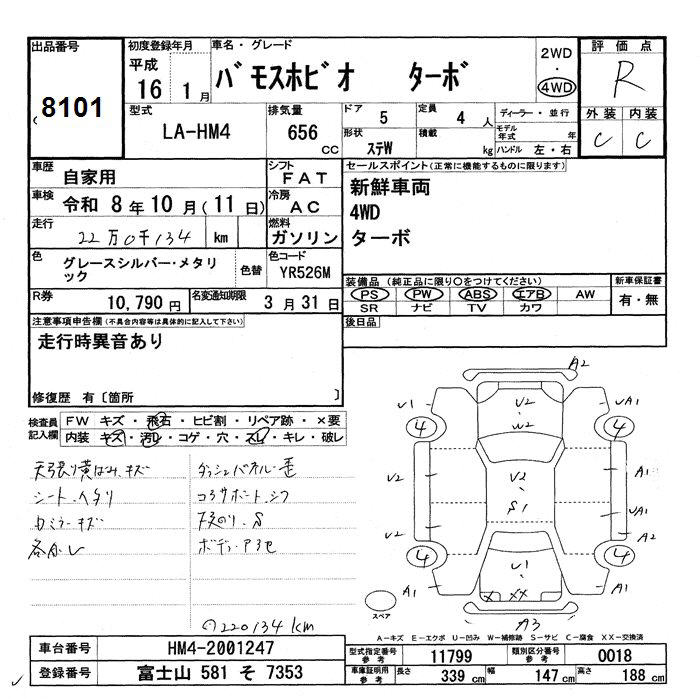 出品番号 初度登録年月 車名・グレード 2WD 評価点
8101 平成 16 1月 バモスホビオ ターボ ・ 4WD R
型式 排気量 ドア 定員 ディーラー・並行 外装 内装
LA-HM4 656 CC 5 4人 モデル年式 年 C C
形状 ステW 積載 kg ハンドル 左・右
車歴 自家用 シフト FAT セールスポイント(正常に機能するものに限ります)
車検 令和 8年 10月(11日) 冷房 AC 新鮮車両
走行 22万0千134 km 燃料 ガソリン 4WD
ターボ
色 グレースシルバー・メタリック 色替 色コード YR526M
装備品(純正品に限り○をつけてください) 新車保証書
PS PW ABS エアB AW 有・無
SR ナビ TV カワ
R券 10,790円 名変通知期限 3月31日
後日品
注意事項申告欄(不具合内容等は具体的に記入して下さい)
走行時異音あり
修復歴 有〔箇所 〕
検査員記入欄 FW キズ・飛石・ヒビ割・リペア跡・×要
内装 キズ・汚レ・コゲ・穴・スレ・キレ・破レ
シート・ヘタリ
コアサポート・シフ
下廻り・S
220134km
A2
U1 U2 UA1
4 W2 4
A1
U2 U2
S1 UA1
U2 A2
4 U1 4
A1 XX A1
スペア A3
A-キズ E-エクボ U-凹み W-補修跡 S-サビ C-腐食 XX-交換済
車台番号 HM4-2001247 型式指定番号 参考 11799 類別区分番号 参考 0018
登録番号 富士山 581 そ 7353 車庫証明用 参考 長さ 339 cm 幅 147 cm 高さ 188 cm